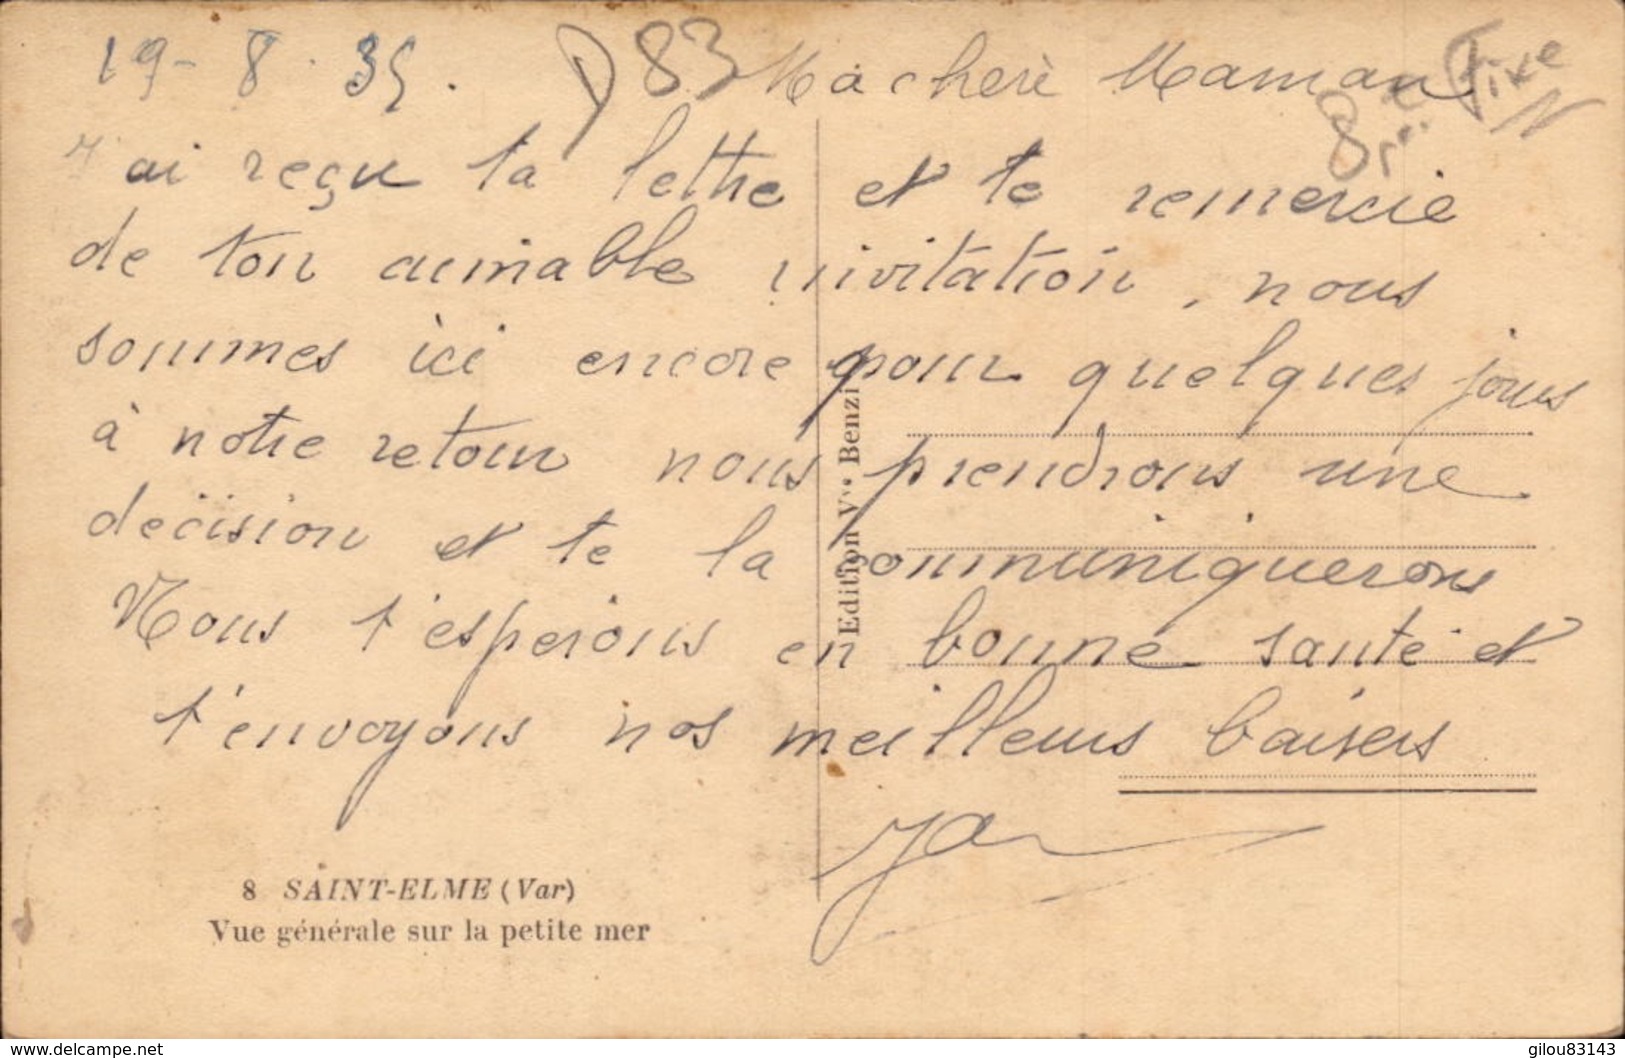 19-8.35. D83 Ma cherè Maman Fixe
8 N
J'ai reçu ta lettre et te remercie
de ton aimable invitation, nous
sommes ici encore pour quelques jours
à notre retour nous prendrons une
decision et te la communiquerons
Nous t'esperons en bonne santé et
t'envoyons nos meilleurs baisers
Edition Vve Benzi
8 SAINT-ELME (Var)
Vue générale sur la petite mer
www.delcampe.net
gilou83143